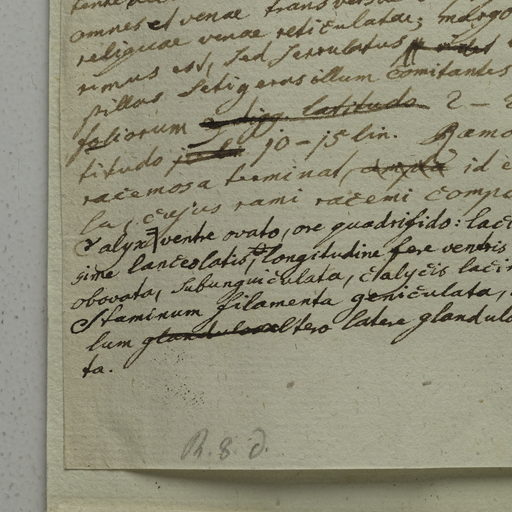 omnes et venae transvers
reliquae venae reticulatae; margo
rimus est, sed serrulatus
pillas setigeras illum comitantes
foliorum latitudo 2 — 
titudo 10-15 lin. Ramo
racemosa terminat, id e
la, cujus rami racemi compo
Calyx ventre ovato, ore quadrifido: laci
gime lanceolatis, longitudine fere ventris
obovata, subunguiculata, calycis lacin
Staminum filamenta geniculata,
lum glandulosa altero latere glandulo
ta.
R. 8. d.